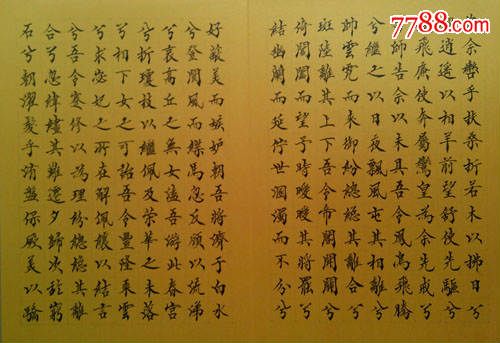 7788.com
余轡乎扶桑折若木以拂日兮
逍遙以相羊前望舒使先驅兮
飛廉使奔屬鸞皇為余先戒兮
師告余以未具吾令鳳鳥飛騰
兮繼之以日夜飄風屯其相離兮
帥雲霓而來御紛總總其離合兮
斑陸離其上下吾令帝閽開關兮
倚閶闔而望予時曖曖其將罷兮
結幽蘭而延佇世溷濁而不分兮
好蔽美而嫉妒朝吾將濟于白水
兮登閬風而緤馬忽反顧以流涕
兮哀高丘之無女溘吾游此春宮
兮折瓊枝以繼佩及荣華之未落
兮相下女之可詒吾令豐隆乘雲
兮求宓妃之所在解佩纕以結言
兮吾令蹇修以為理紛總總其離
合兮忽緯繣其難遷夕歸次於窮
石兮朝濯髮乎洧盤保厥美以驕